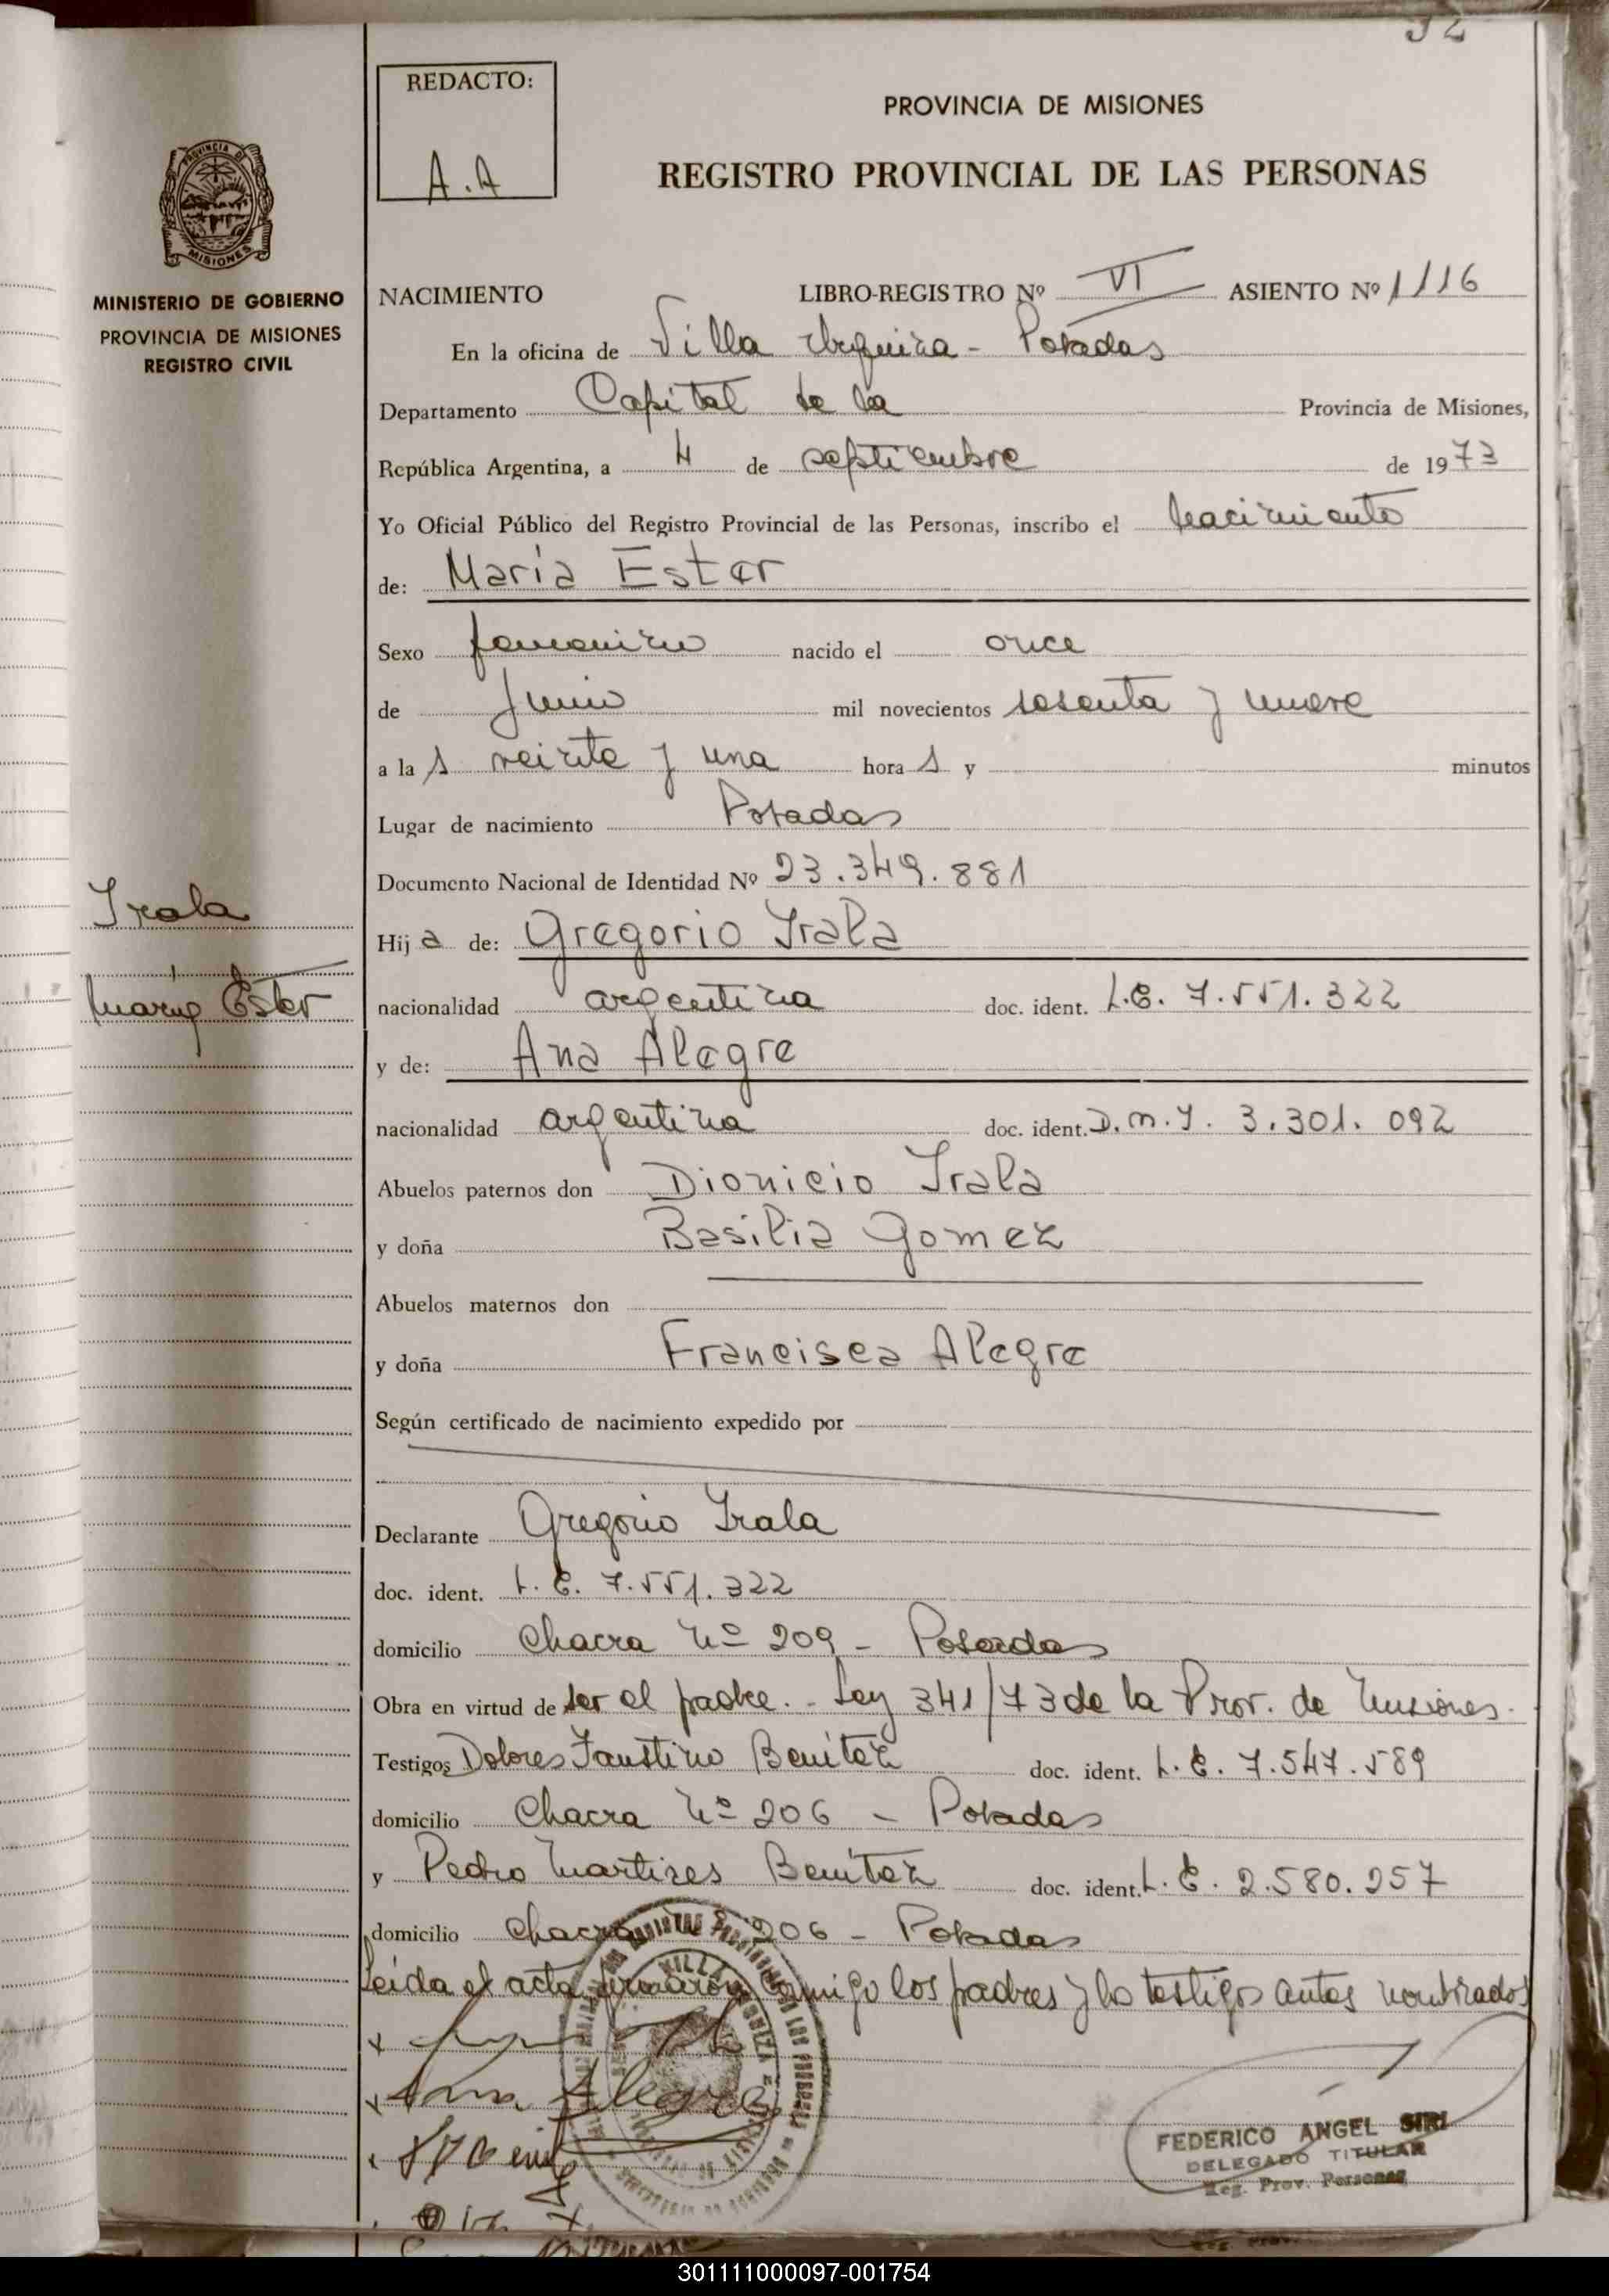 REDACTO:
A.A
PROVINCIA DE MISIONES
REGISTRO PROVINCIAL DE LAS PERSONAS
PROVINCIA DE
MISIONES
MINISTERIO DE GOBIERNO
PROVINCIA DE MISIONES
REGISTRO CIVIL
NACIMIENTO LIBRO-REGISTRO Nº VI ASIENTO Nº 1116
En la oficina de Villa Urquiza - Posadas
Departamento Capital de la Provincia de Misiones,
República Argentina, a 4 de septiembre de 1973
Yo Oficial Público del Registro Provincial de las Personas, inscribo el nacimiento
de: María Ester
Sexo femenino nacido el once
de Junio mil novecientos sesenta y nueve
a la s veinte y una hora s y minutos
Lugar de nacimiento Posadas
Documento Nacional de Identidad Nº 23.349.881
Irala
María Ester
Hij a de: Gregorio Irala
nacionalidad argentina doc. ident. L.E. 7.551.322
y de: Ana Alegre
nacionalidad argentina doc. ident. D.N.I. 3.301.092
Abuelos paternos don Dionicio Irala
y doña Basilia Gomez
Abuelos maternos don
y doña Francisca Alegre
Según certificado de nacimiento expedido por
Declarante Gregorio Irala
doc. ident. L.E. 7.551.322
domicilio Chacra Nº 209 - Posadas
Obra en virtud de ser el padre. - Ley 341/73 de la Prov. de Misiones.
Testigos Dolores Faustino Benitez doc. ident. L.E. 7.547.589
domicilio Chacra Nº 206 - Posadas
y Pedro Martires Benitez doc. ident. L.E. 2.580.257
domicilio Chacra 206 - Posadas
Leída el acta firmaron conmigo los padres y los testigos antes nombrados
Ana Alegre
FEDERICO ANGEL SIRI
DELEGADO TITULAR
Reg. Prov. Personas
301111000097-001754